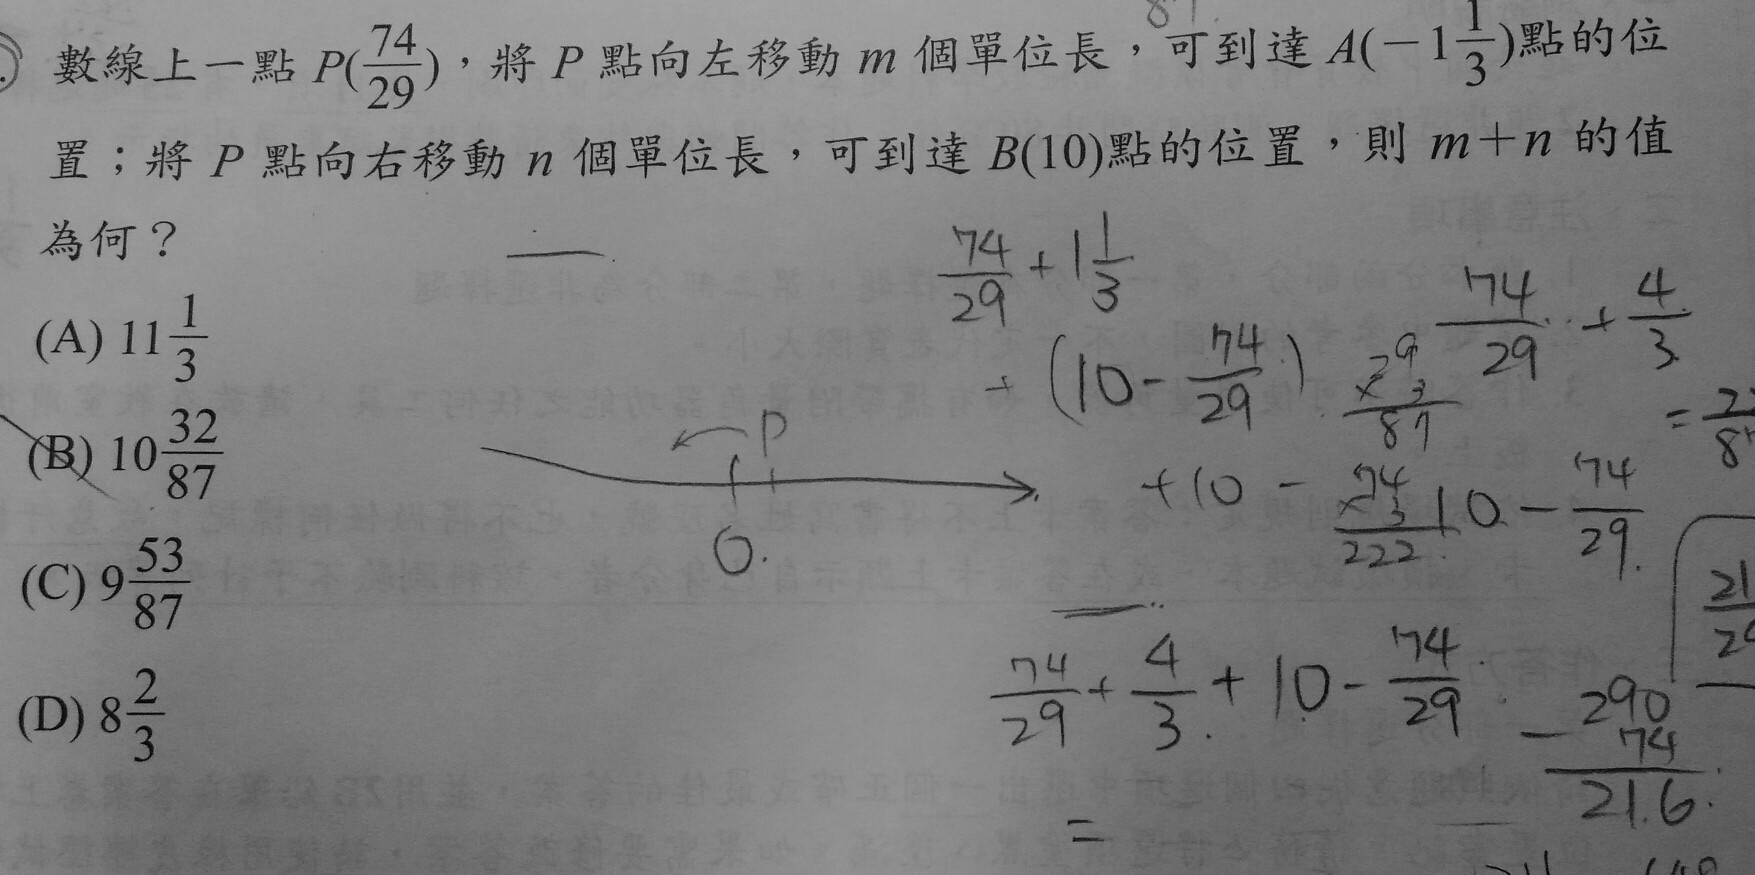 87.
數線上一點 P(74/29)，將 P 點向左移動 m 個單位長，可到達 A(－1 1/3)點的位
置；將 P 點向右移動 n 個單位長，可到達 B(10)點的位置，則 m＋n 的值
為何？
(A) 11 1/3
(B) 10 32/87
(C) 9 53/87
(D) 8 2/3
P
O.
74/29 + 1 1/3
+ (10 - 74/29)
29
×3
87
74/29 + 4/3
+10 -
74
×3
222
10 - 74/29
74/29 + 4/3 + 10 - 74/29
=
290
- 74
216